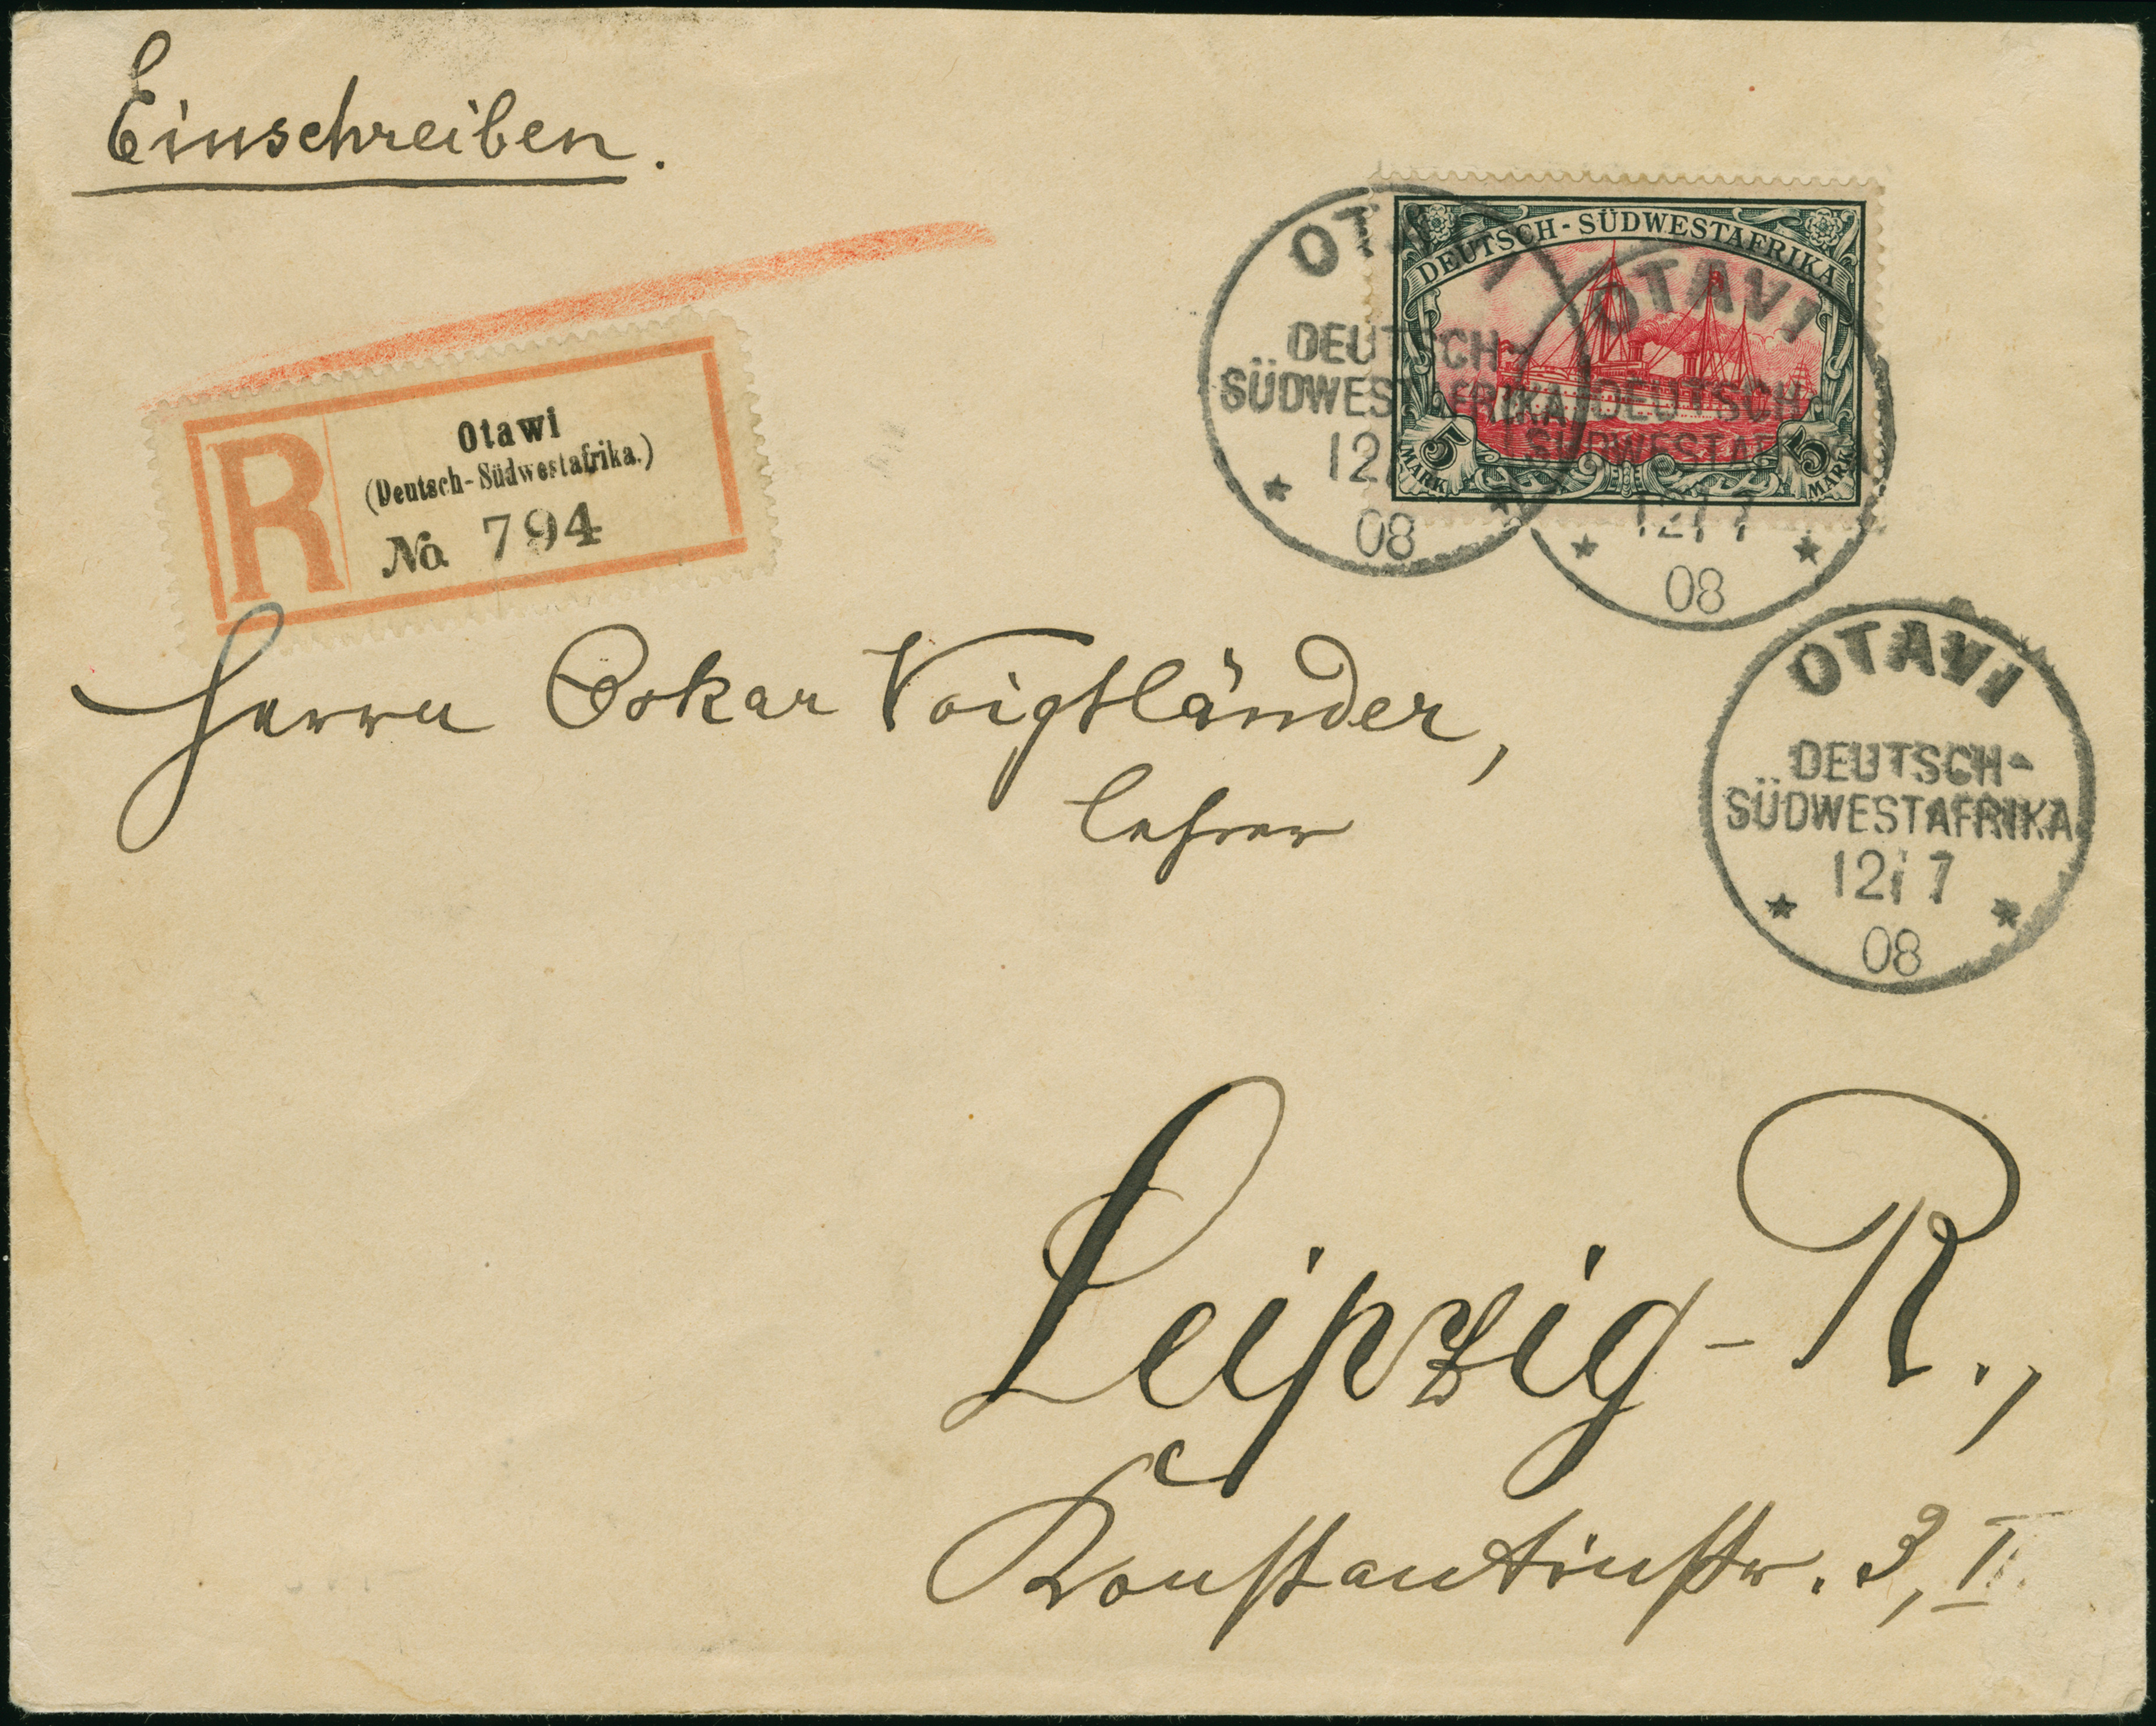 Einschreiben.
DEUTSCH-SÜDWESTAFRIKA
5 MARK
5 MARK
OTAVI
DEUTSCH-
SÜDWESTAFRIKA
12
08
OTAVI
DEUTSCH-
SÜDWESTAFRIKA
12/7
08
R
Otawi
(Deutsch-Südwestafrika.)
No. 794
OTAVI
DEUTSCH-
SÜDWESTAFRIKA
12/7
08
Herrn Oskar Voigtländer,
Lehrer
Leipzig-R.,
Konstantinstr. 3,